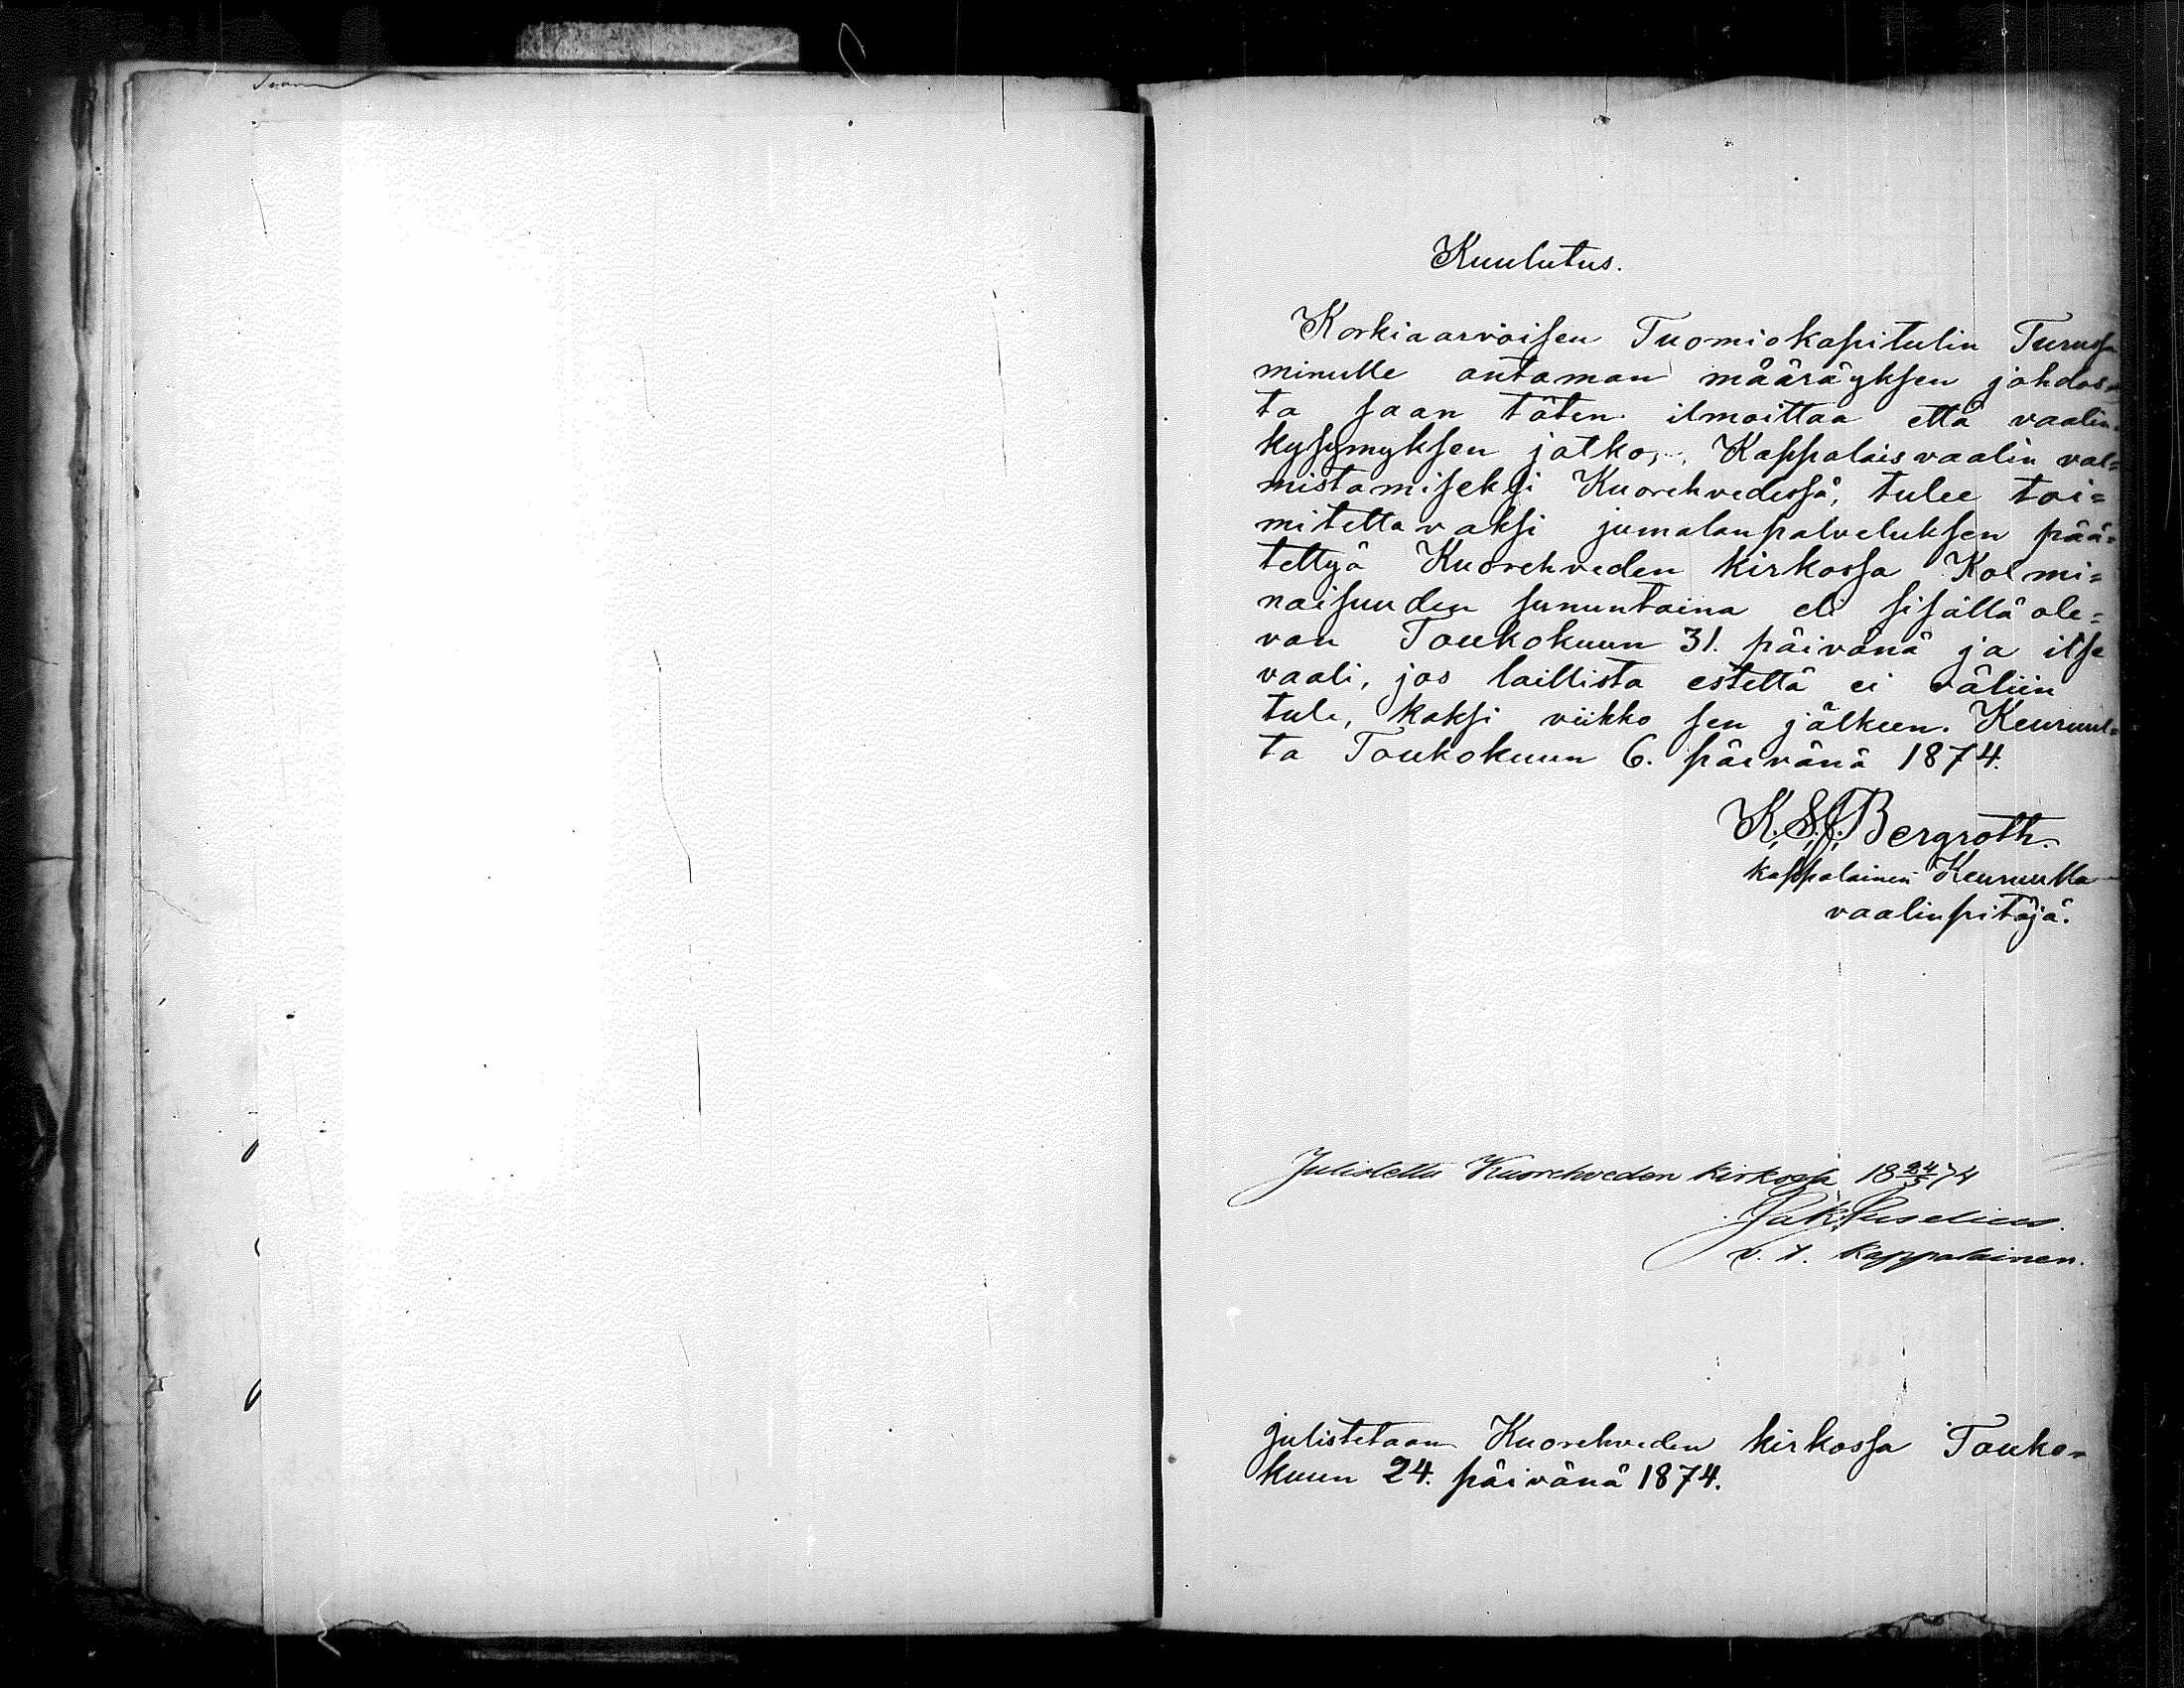 Kuulutus.
Korkiaarvoisen Tuomiokapitulin Turussa
minulle antaman määräyksen johdos-
ta saan täten ilmoittaa että vaalin-
kysymyksen jatko, Kappalaisvaalin val=
mistamiseksi Kuorehvedessä, tulee toi=
mitettavaksi jumalanpalveluksen pää=
tettyä Kuorehveden kirkossa Kolmi=
naisuuden sunnuntaina eli sisällä ole=
van Toukokuun 31. päivänä ja itse
vaali, jos laillista estettä ei väliin
tule, kaksi viikko sen jälkeen. Keuruul=
ta Toukokuun 6. päivänä 1874.
K. S. J. Bergroth.
kappalainen Keuruulla
vaalinpitäjä.
Julistettu Kuorehveden kirkossa 18 24/5 74
v. t. kappalainen.
julistetaan Kuorehveden kirkossa Touko=
kuun 24. päivänä 1874.